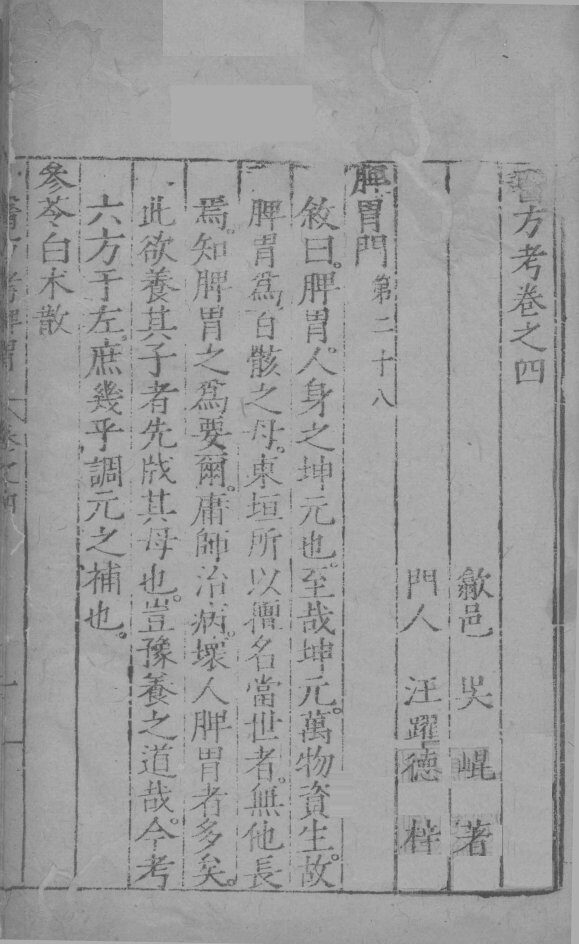 醫方考卷之四
歙邑 吳崐 著
門人 汪躍德 梓
脾胃門 第二十八
敘曰。脾胃。人身之坤元也。至哉坤元。萬物資生。故
脾胃爲百骸之母。東垣所以擅名當世者。無他長
焉。知脾胃之爲要爾。庸師治病。壞人脾胃者多矣。
此欲養其子者先戕其母也。豈豫養之道哉。今考
六方于左。庶幾乎調元之補也。
參苓白朮散
醫方考脾胃 卷之四 一